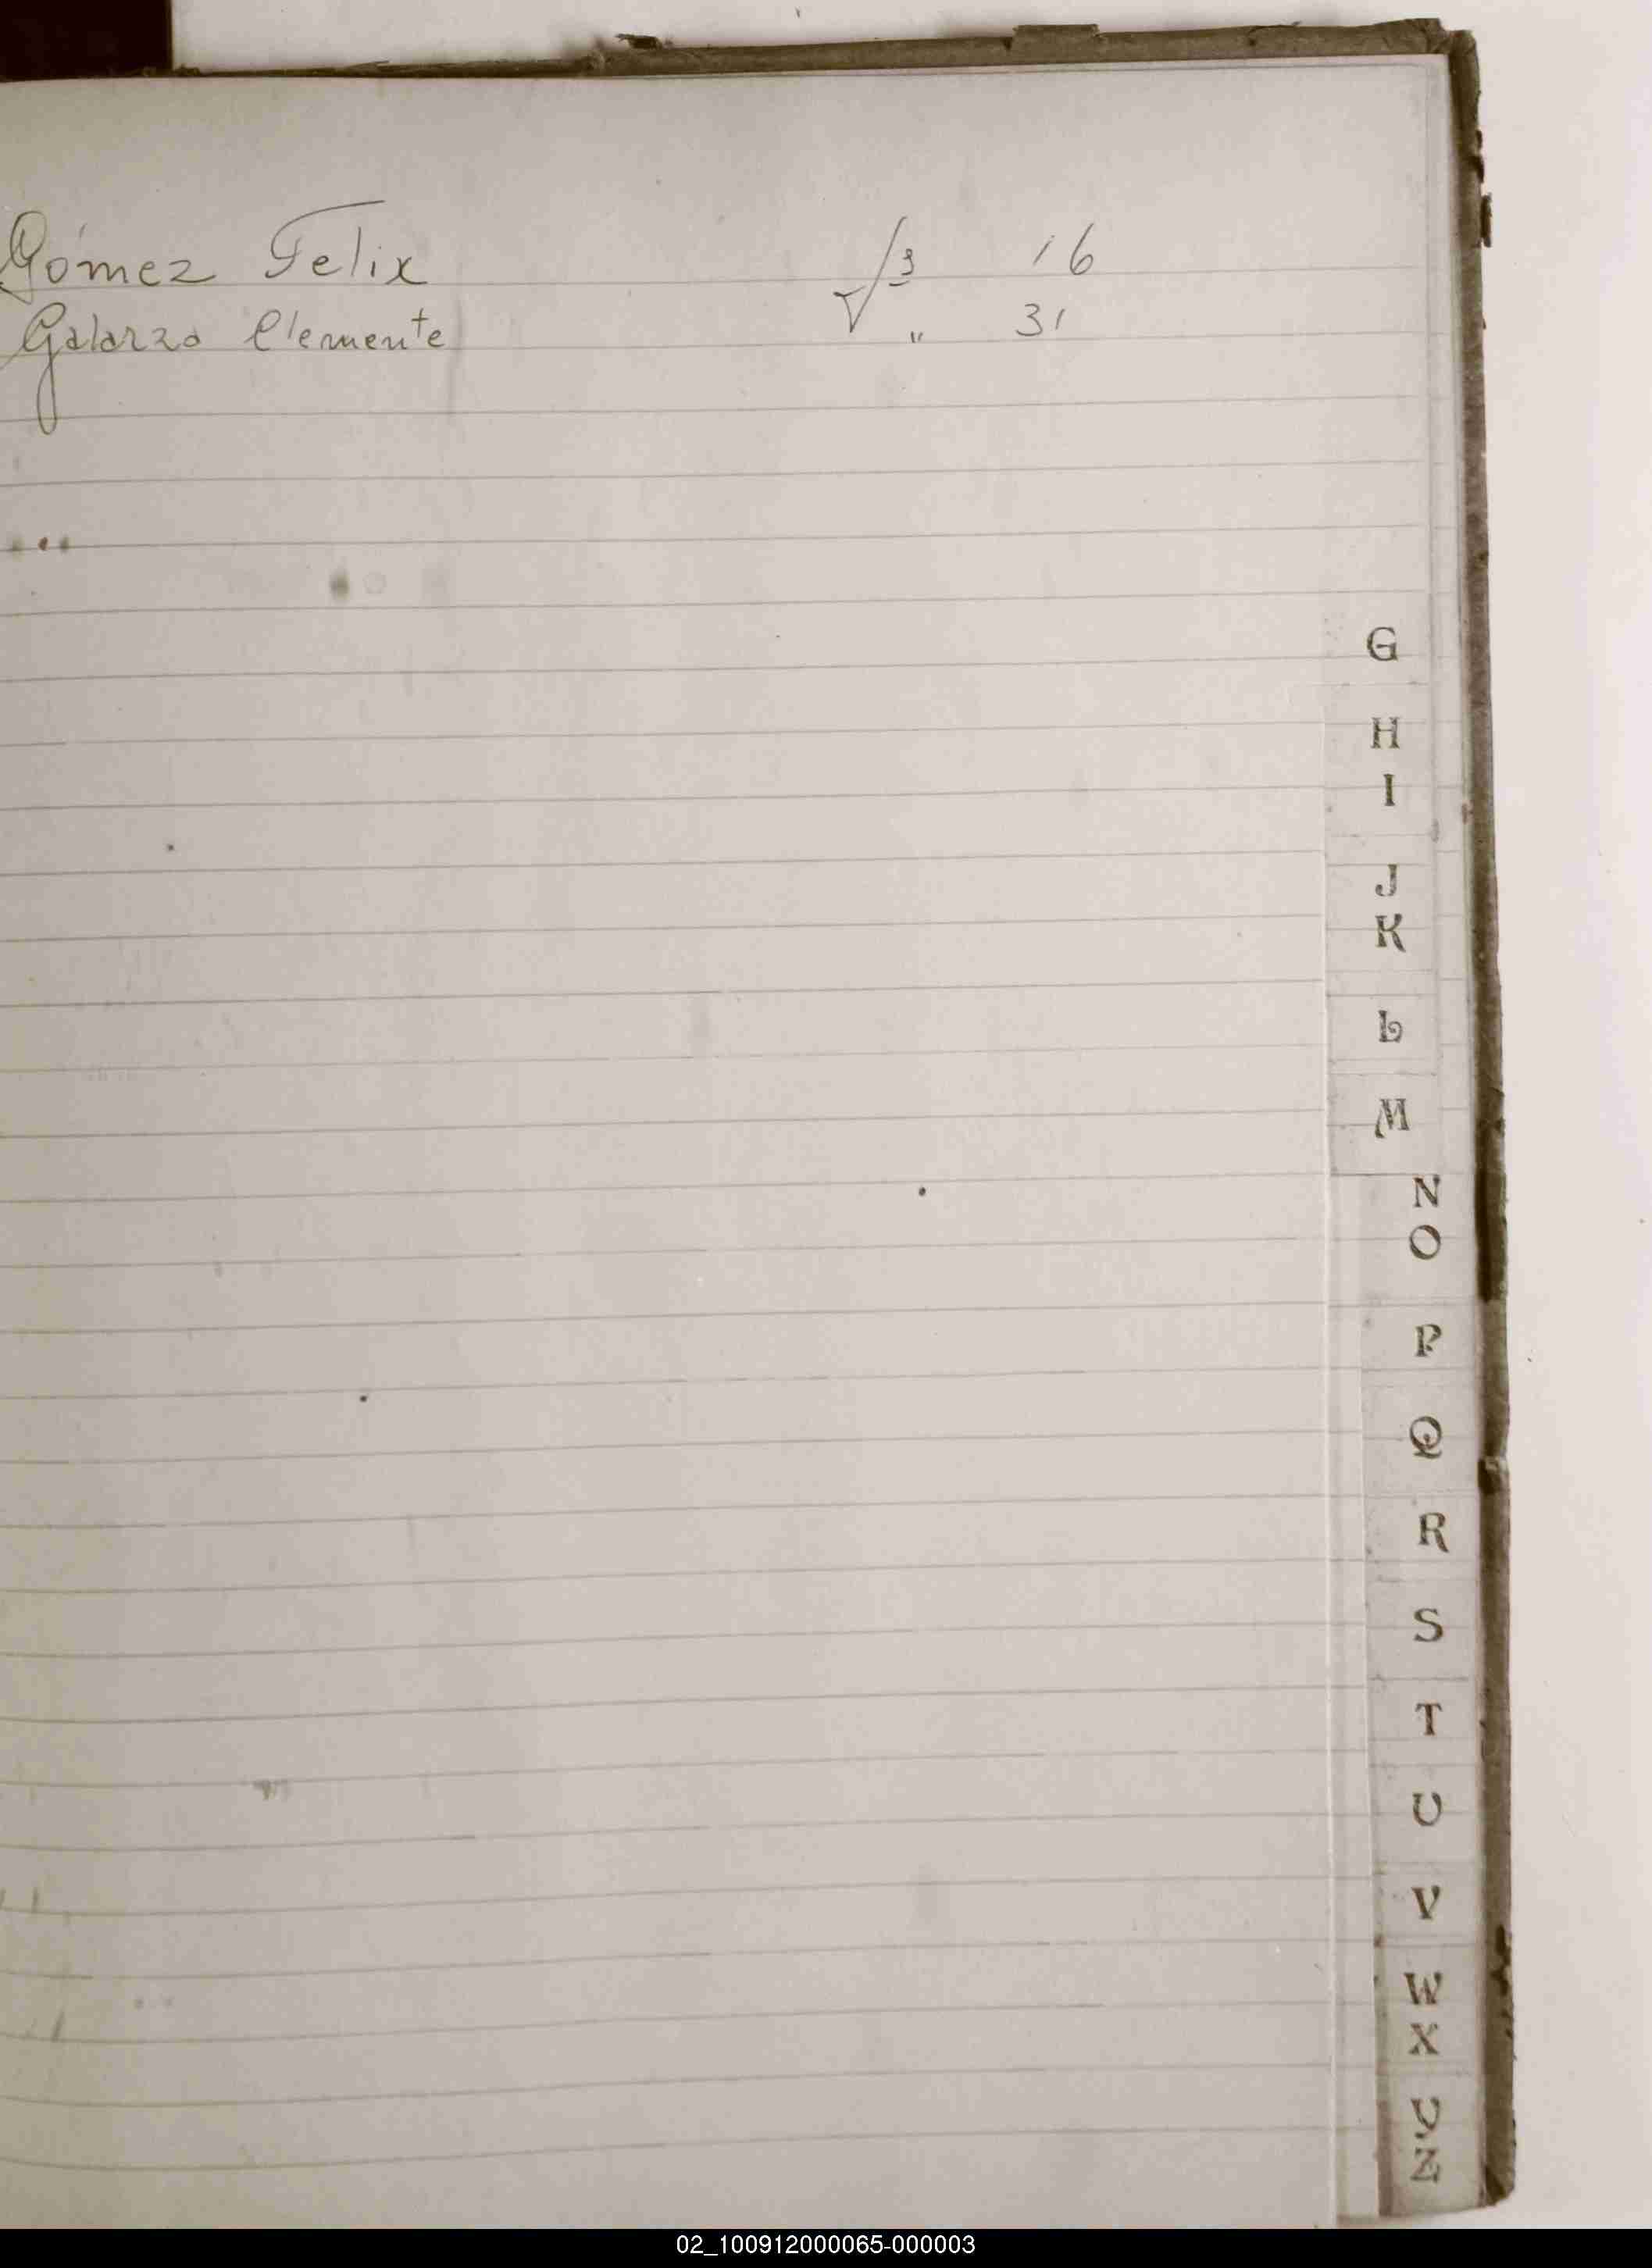 Gómez Felix √3 16
Galarza Clemente " 31
G
H
I
J
K
L
M
N
O
P
Q
R
S
T
U
V
W
X
Y
Z
02_100912000065-000003